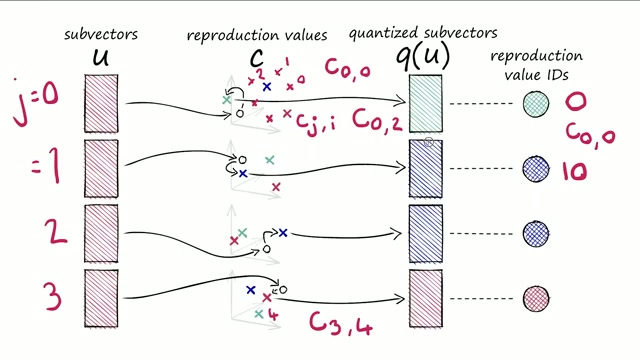 subvectors
u
reproduction values
c
quantized subvectors
q(u)
reproduction
value IDs
j=0
2
1
0
C0,0
Cj,i
C0,2
0
C0,0
=1
10
2
3
4
C3,4